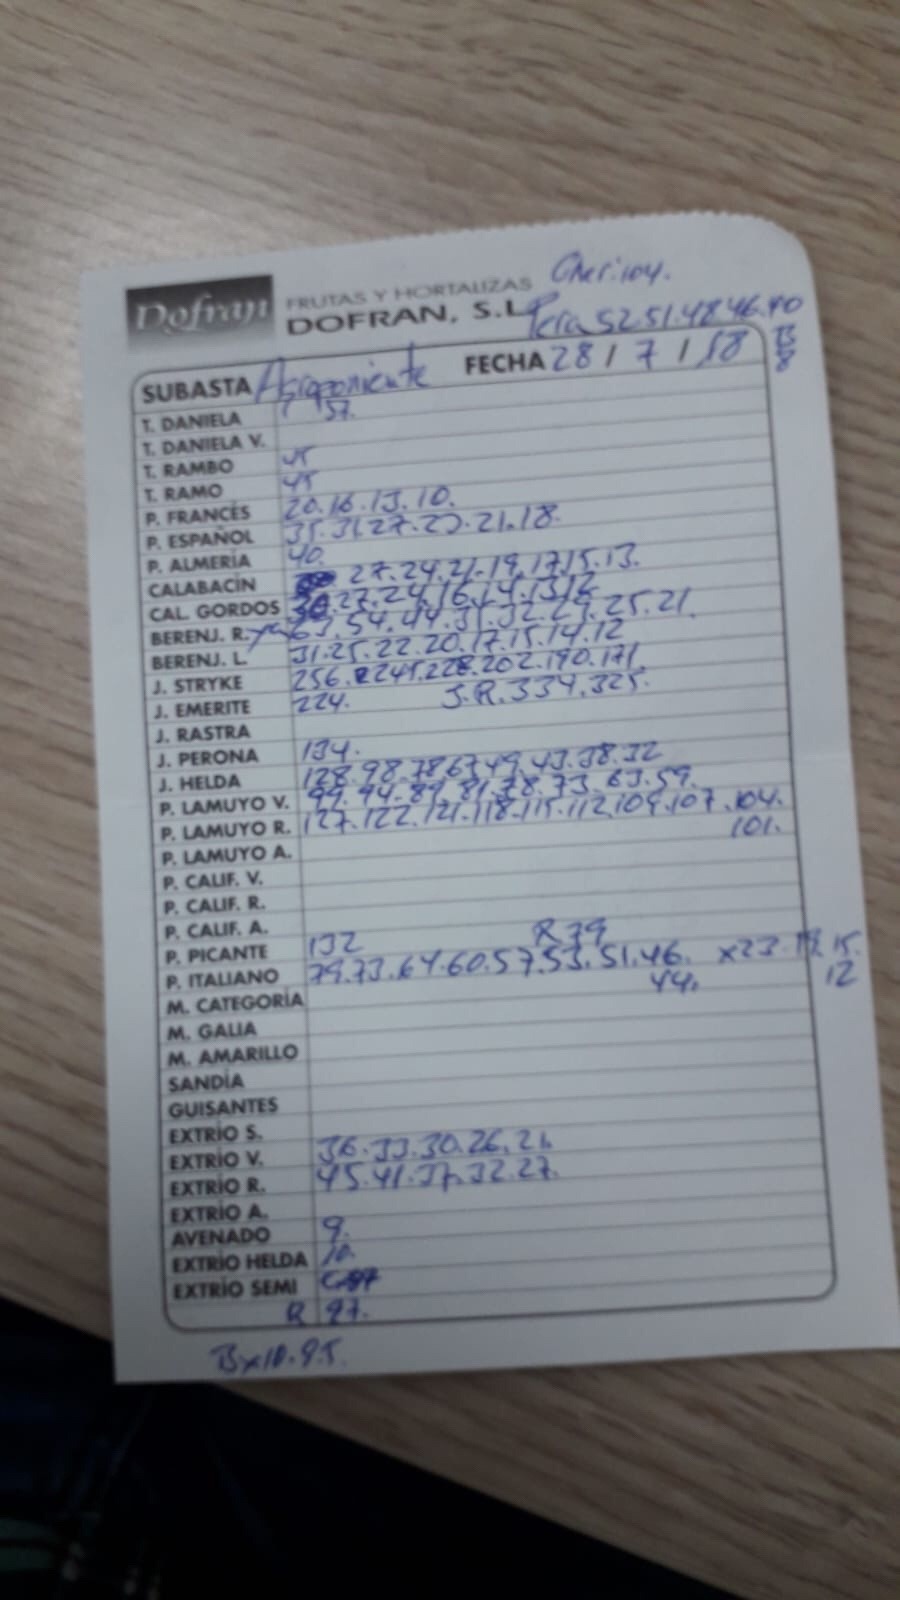 Dofran FRUTAS Y HORTALIZAS
DOFRAN, S.L.
Cheri.104.
Pera 52 51.48 46.40
B
8
SUBASTA Agroponiente FECHA 28 / 7 / 18
T. DANIELA 57.
T. DANIELA V.
T. RAMBO 45
T. RAMO 45
P. FRANCÉS 20.16.13.10.
P. ESPAÑOL 35.31.27.25.21.18.
P. ALMERÍA 40.
CALABACÍN 27.24.21.19.17.15.13.
CAL. GORDOS 30.27.24.16.14.13.12
BERENJ. R. 63.54.44.35.32.29.25.21.
BERENJ. L. 31.25.22.20.17.15.14.12
J. STRYKE 256.245.228.202.190.171.
J. EMERITE 224. J.R.334.325.
J. RASTRA
J. PERONA 134.
J. HELDA 128.98.78.67.49.43.38.32
P. LAMUYO V. 99.94.89.81.78.73.63.59.
P. LAMUYO R. 127.122.121.118.115.112.109.107.104.
101.
P. LAMUYO A.
P. CALIF. V.
P. CALIF. R.
P. CALIF. A.
P. PICANTE 132 R 79
P. ITALIANO 79.73.64.60.57.53.51.46. x23.19.15.
44. 12
M. CATEGORÍA
M. GALIA
M. AMARILLO
SANDÍA
GUISANTES
EXTRÍO S.
EXTRÍO V. 36.33.30.26.21.
EXTRÍO R. 45.41.37.32.27.
EXTRÍO A.
AVENADO 9.
EXTRÍO HELDA 10.
EXTRÍO SEMI
R 97.
Bx10.9.5.